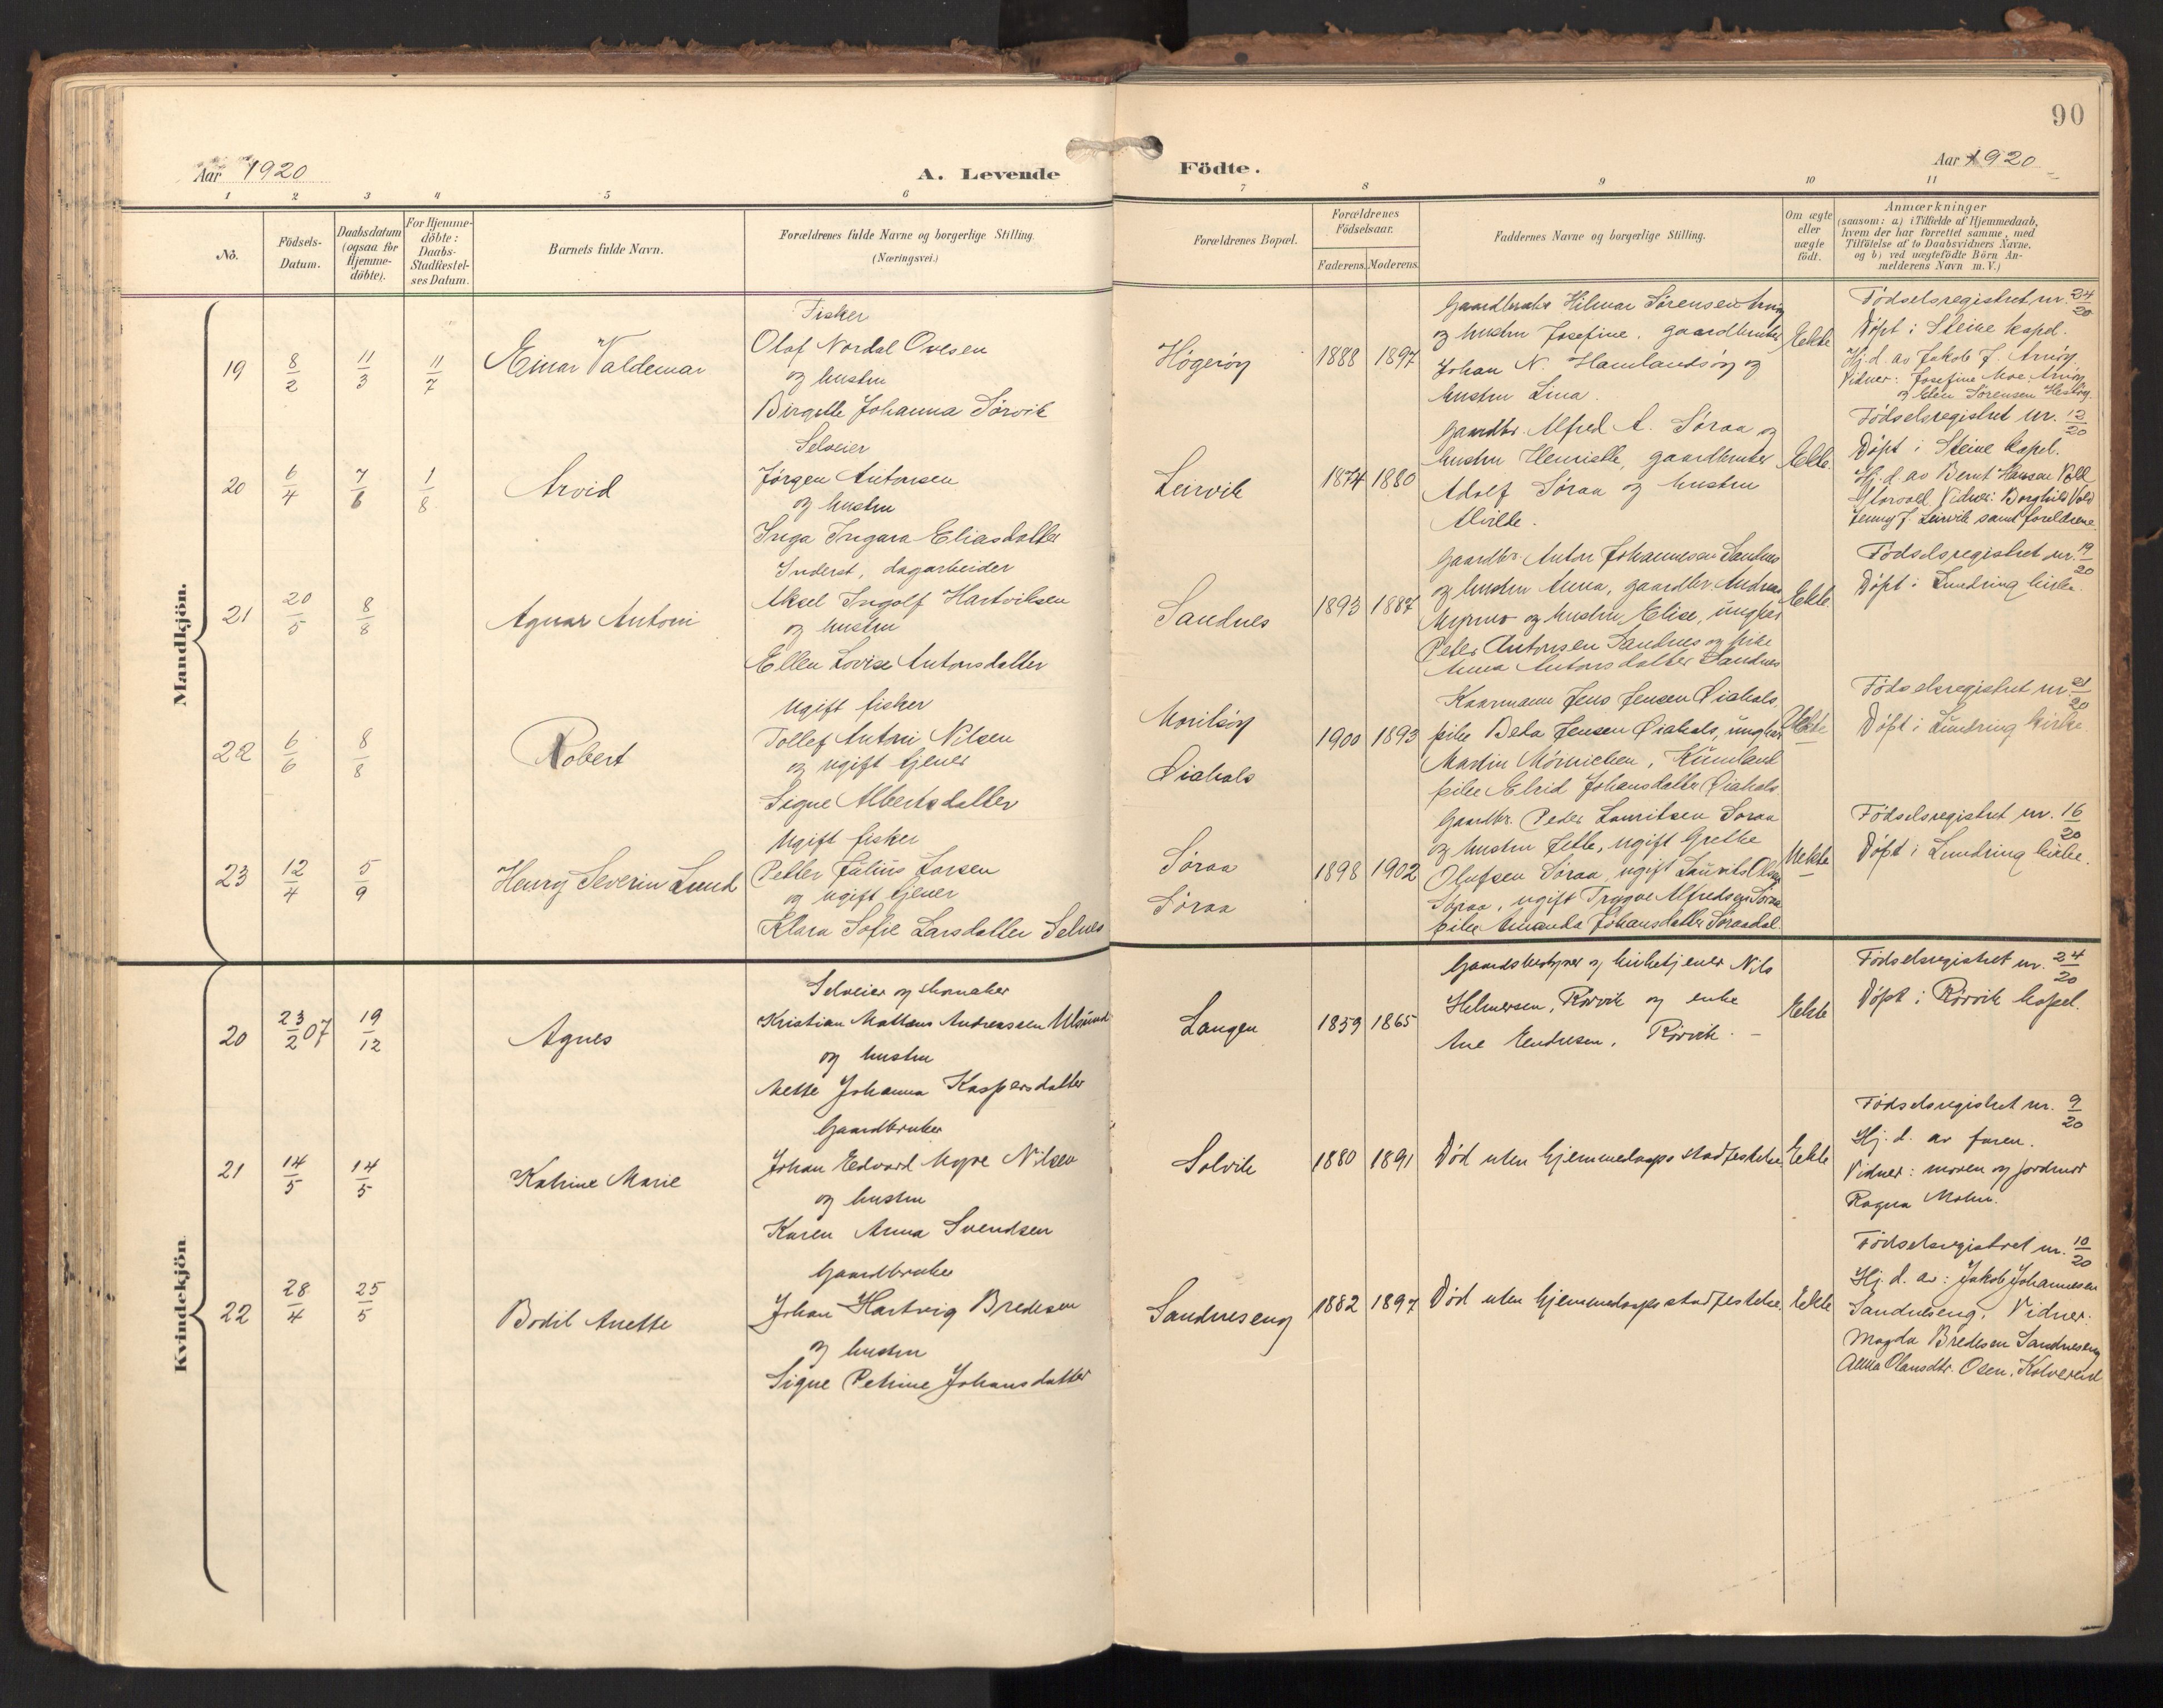 90
Aar 1920
A. Levende
Födte.
Aar 1920
1 2 3 4 5 6
7 8 9 10 11
Nö.
Födsels-
Datum.
Daabsdatum
(ogsaa for
Hjemme-
döbte).
For Hjemme-
döbte:
Daabs-
Stadfæstel-
ses Datum.
Barnets fulde Navn.
Forældrenes fulde Navne og borgerlige Stilling.
(Næringsvei.)
Forældrenes Bopæl.
Forældrenes
Födselsaar.
Faderens. Moderens.
Faddernes Navne og borgerlige Stilling.
Om ægte
eller
uægte
födt.
Anmærkninger
(saasom: a) i Tilfælde af Hjemmedaab,
hvem der har forrettet samme, med
Tilføielse af to Daabsvidners Navne,
og b) ved uægtefödte Börn An-
melderens Navn m. V.)
Mandkjön.
19
8/2
11/3
11/7
Einar Valdemar
Fisker
Olaf Nordal Ovesen
og hustru
Birgitte Johanna Sörvik
Högeröy
1888 1897
Gaardbruker Hilmar Sörensen Arnöy
og hustru Josefine, gaardbruker
Johan N. Hamlandsöy og
hustru Lina.
Ekte
Födselsregistret nr. 24/20
Döpt i Steine kapel.
Hj. d. av Jakob J. Arnöy.
Vidner: Josefine Moe Arnöy
og Elen Sörensen
20
6/4
7/6
1/8
Arvid
Selveier
Jörgen Antonsen
og hustru
Inga Ingara Eliasdatter
Leirvik
1874 1880
Gaardbr. Alfred A. Söraa og
hustru Henriette, gaardbruker
Adolf Söraa og hustru
Alvilde.
Ekte.
Födselsregistret nr. 12/20
Döpt i Steine kapel.
Hj. d. av Bernt Hansen
Vidner: Borghild Vold
Jenny J. Leirvik samt foreldrene.
21
20/5
8/8
Agnar Antoni
Inderst, dagarbeider
Aksel Ingolf Hartviksen
og hustru
Ellen Lovise Antonsdatter
Sandnes
1893 1887
Gaardbr. Anton Johannesen Sandnes
og hustru Anna, gaardbr. Andreas
Myrmo og hustru Elise, ungkar
Peter Antonsen Sandnes og pike
Anna Antonsdatter Sandnes
Ekte.
Födselsregistret nr. 19/20
Döpt i Lundring kirke.
22
6/6
8/8
Robert
Ugift fisker
Tollef Antoni Nilsen
og ugift tjener
Signe Albertsdatter
Moriksöy
Öiahals
1900 1893
Kaarmann Jens Jensen Öiahals,
pike Beta Jensen Öiahals, ungkar
Martin Mörnichen,
pike Elrid Johansdatter Öiahals.
Uekte
Födselsregistret nr. 21/20
Döpt i Lundring kirke.
23
12/4
5/9
Henry Severin Lund
Ugift fisker
Petter Julius Larsen
og ugift tjener
Klara Sofie Larsdatter Selnes
Söraa
Söraa
1898 1902
Gaardbr. Peder Lauritsen Soraa
og hustru Jette, ugift Grethe
Olufsen Söraa, ugift Lauvits Olsen
Söraa, ugift Trygve Alfredsen Söraa
pike Amanda Johansdatter Söraadal.
Uekte
Födselsregistret nr. 16/20
Döpt i Lundring kirke.
Kvindekjön
20
23/2 07
19/12
Agnes
Selveier og skomaker
Kristian Mattæus Andreassen Ulsund
og hustru
Mette Johanna Kaspersdatter
Langen
1859 1865
Gaardsbestyrer og kirketjener Nils
Hilmersen, Rörvik og enke
Ane Endresen, Rörvik. —
Ekte
Födselsregistret nr. 24/20
Döpt i Rörvik kapel.
21
14/5
14/5
Katrine Marie
Gaardbruker
Johan Edvard Myre Nilsen
og hustru
Karen Anna Svendsen
Solvik
1880 1891
Död uten hjemmedaaps stadfestelse.
Ekte
Födselsregistret nr. 9/20
Hj. d. av faren.
Vidner: moren og jordmor
Ragna Mohn.
22
28/4
25/5
Bodil Anette
Gaardbruker
Johan Hartvig Bredesen
og hustru
Signe Petrine Johansdatter
Sandneseng
1882 1897
Död uten hjemmedaapsstadfestelse.
Ekte
Födselsregistret nr. 10/20
Hj. d. av: Jakob Johannesen
Sandneseng. Vidner:
Magda Bredesen Sandneseng
Anna Olausdtr. Osen, Kolvereid